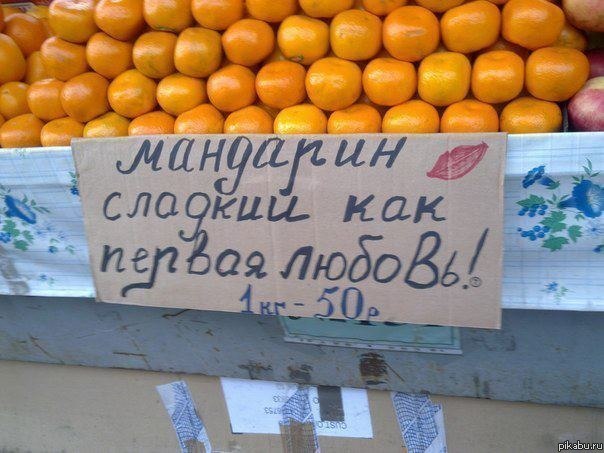 мандарин
сладкий как
первая любовь!
1 кг - 50р
pikabu.ru